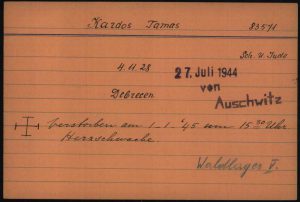 Kardos Tamas 83571
Sch. U. Jude
4.11.28
27. Juli 1944
von
Auschwitz
Debrecen
Verstorben am 1.-1.-45 um 15 30 Uhr
Herzschwäche.
Waldlager V.